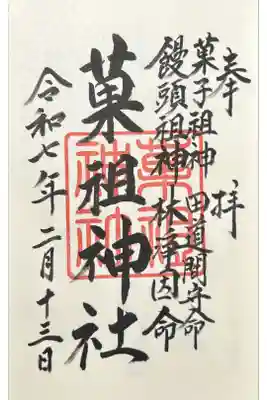 奉拝
菓子祖神 田道間守命
饅頭祖神 林浄因命
菓祖神社
令和七年二月十三日
菓祖神社